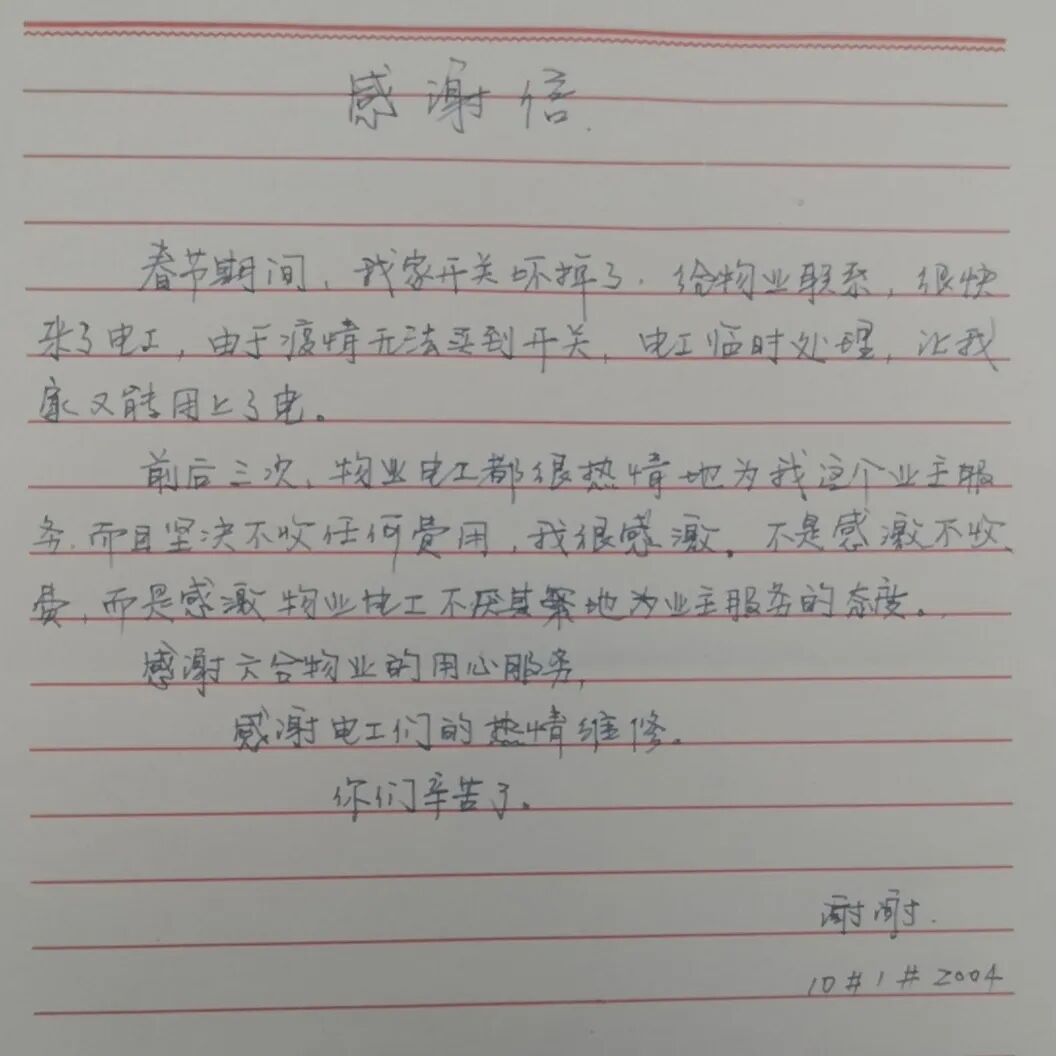 感谢信.
春节期间，我家开关坏掉了.给物业联系，很快
来了电工，由于疫情无法买到开关，电工临时处理，让我
家又能用上了电。
前后三次，物业电工都很热情地为我这个业主服
务.而且坚决不收任何费用，我很感激。不是感激不收
费，而是感激物业电工不厌其繁地为业主服务的态度。
感谢六合物业的用心服务，
感谢电工们的热情维修。
你们辛苦了。
谢谢.
10#1#2004